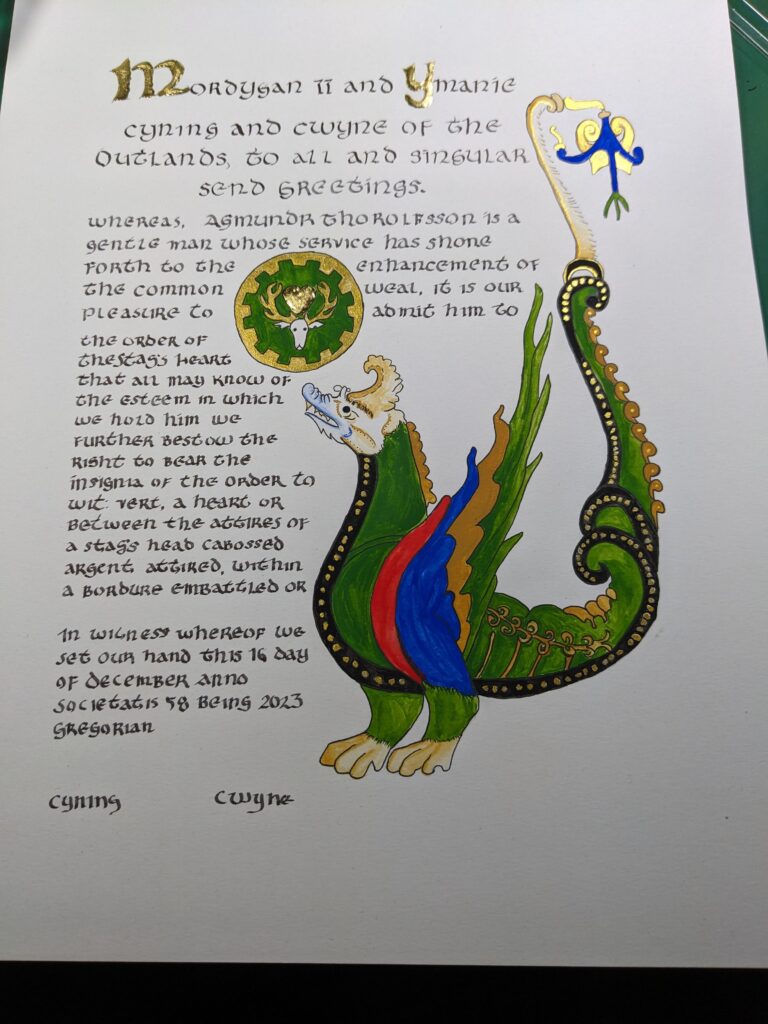 Mordygan II and Ymanie
Cyning and Cwyne of the
Outlands, to all and singular
send greetings.
Whereas, Agmundr Thorolfsson is a
gentle man whose service has shone
forth to the enhancement of
the common weal, it is our
pleasure to admit him to
the order of
the Stag's Heart
that all may know of
the esteem in which
we hold him we
further bestow the
right to bear the
insignia of the order to
wit: vert, a heart or
between the attires of
a stag's head cabossed
argent attired, within
a bordure embattled or
In witness whereof we
set our hand this 16 day
of december anno
societatis 58 being 2023
gregorian
Cyning Cwyne